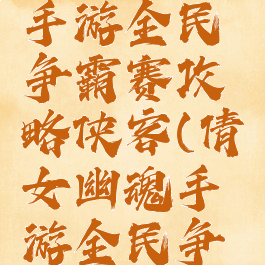 手游全民
争霸赛攻
略侠客(倩
女幽魂手
游全民争